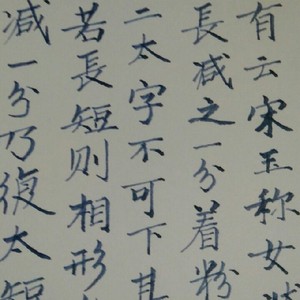 有云宋玉称女
長减之一分着粉
二太字不可下其
若長短则相形
减一分乃復太短